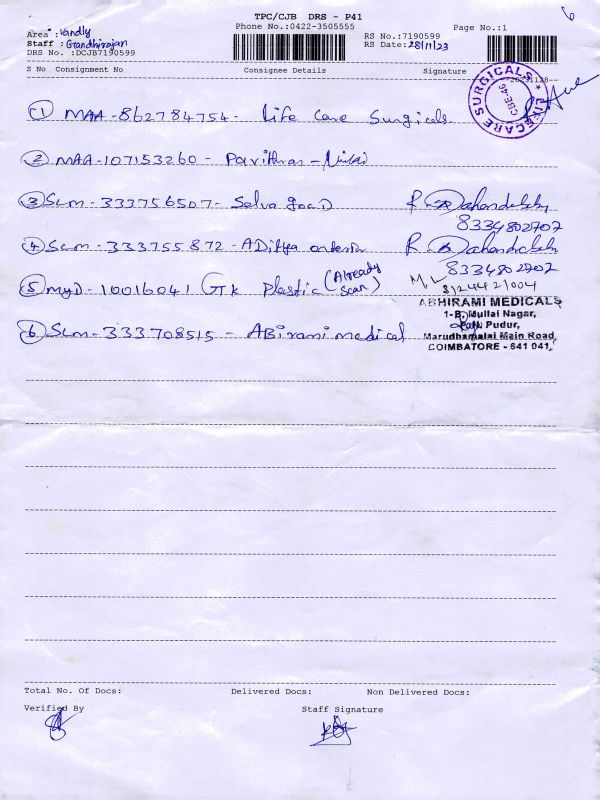 6
TPC/CJB DRS - P41
Phone No.:0422-3505555
Page No.:1
Area : Vandly
RS No.:7190599
Staff : Gandhirajan
RS Date: 28/11/23
DRS No. :DCJB7190599
S No Consignment No Consignee Details Signature
20231128
LIFECARE SURGICALS
CBE-46
① MAA-862784754- Life Care Surgicals.
② MAA-107153260- Pavithran-
③ SLM-333756507- Selva
8334802707
④ SLM-333755872- ADitya
8334802707
⑤ MYD-10016041 GTK Plastic (Already Scan)
M.L
ABHIRAMI MEDICALS
1-B, Mullai Nagar,
Pudur,
Marudhamalai Main Road,
COIMBATORE - 641 041.
⑥ SLM-333708515- ABirami medical
Total No. Of Docs: Delivered Docs: Non Delivered Docs:
Verified By Staff Signature